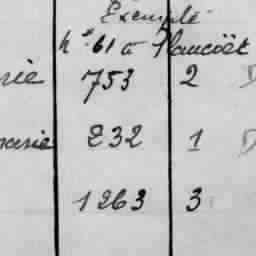 Exemple
n° 61 à Plancoët
rie 753 2 D
marie 232 1 D
1263 3